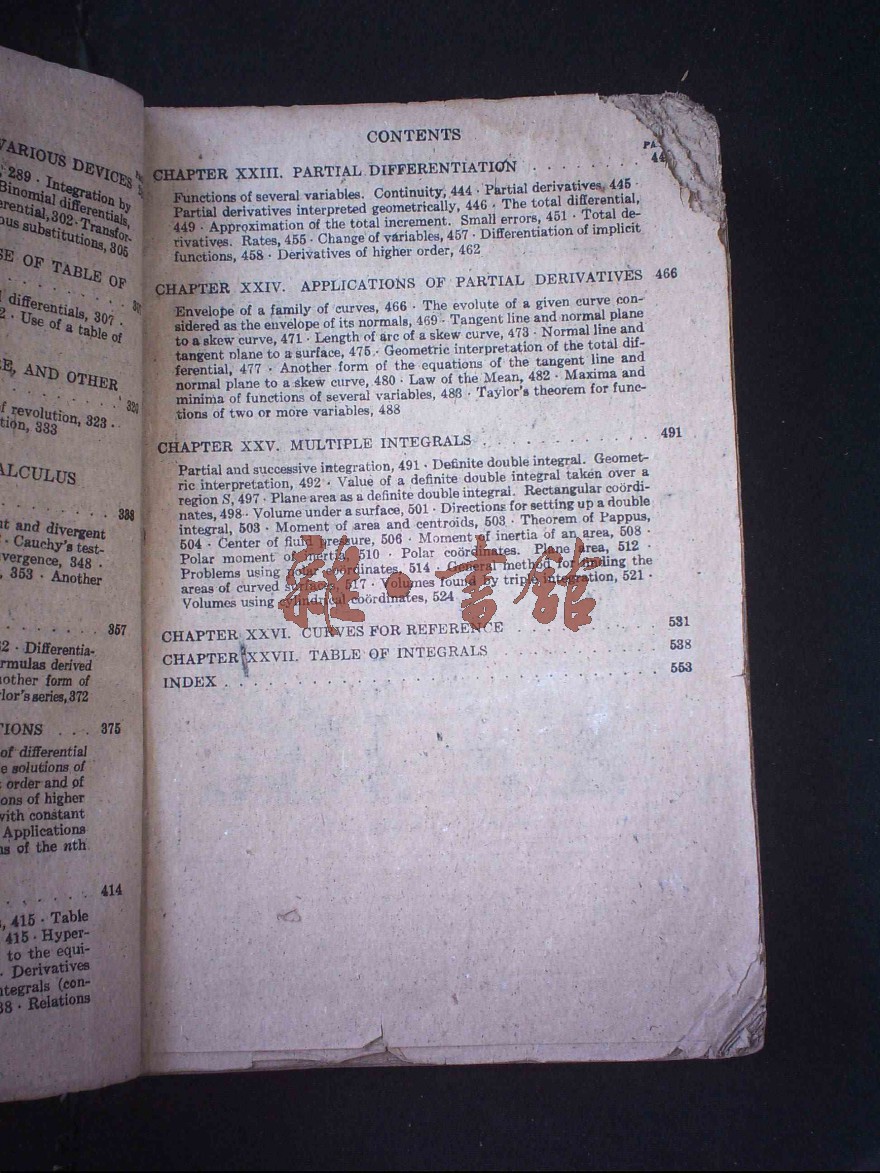 VARIOUS DEVICES
, 289 · Integration by
Binomial differentials,
erential, 302 · Transfor-
ous substitutions, 305
SE OF TABLE OF
differentials, 307 ·
2 · Use of a table of
E, AND OTHER
320
of revolution, 323 ·
tion, 333
ALCULUS
338
nt and divergent
· Cauchy's test-
vergence, 348 ·
, 353 · Another
357
2 · Differentia-
ormulas derived
nother form of
lor's series, 372
TIONS . . . 375
of differential
e solutions of
order and of
ons of higher
with constant
Applications
ns of the nth
414
, 415 · Table
415 · Hyper-
to the equi-
· Derivatives
ntegrals (con-
38 · Relations
CONTENTS
PA
CHAPTER XXIII. PARTIAL DIFFERENTIATION . . . . . . . 44
Functions of several variables. Continuity, 444 · Partial derivatives, 445 ·
Partial derivatives interpreted geometrically, 446 · The total differential,
449 · Approximation of the total increment. Small errors, 451 · Total de-
rivatives. Rates, 455 · Change of variables, 457 · Differentiation of implicit
functions, 458 · Derivatives of higher order, 462
CHAPTER XXIV. APPLICATIONS OF PARTIAL DERIVATIVES 466
Envelope of a family of curves, 466 · The evolute of a given curve con-
sidered as the envelope of its normals, 469 · Tangent line and normal plane
to a skew curve, 471 · Length of arc of a skew curve, 473 · Normal line and
tangent plane to a surface, 475 · Geometric interpretation of the total dif-
ferential, 477 · Another form of the equations of the tangent line and
normal plane to a skew curve, 480 · Law of the Mean, 482 · Maxima and
minima of functions of several variables, 483 · Taylor's theorem for func-
tions of two or more variables, 488
CHAPTER XXV. MULTIPLE INTEGRALS . . . . . . . . . . . 491
Partial and successive integration, 491 · Definite double integral. Geomet-
ric interpretation, 492 · Value of a definite double integral taken over a
region S, 497 · Plane area as a definite double integral. Rectangular coördi-
nates, 498 · Volume under a surface, 501 · Directions for setting up a double
integral, 503 · Moment of area and centroids, 503 · Theorem of Pappus,
504 · Center of fluid pressure, 506 · Moment of inertia of an area, 508 ·
Polar moment of inertia, 510 · Polar coördinates. Plane area, 512 ·
Problems using polar coördinates, 514 · General method for finding the
areas of curved surfaces, 517 · Volumes found by triple integration, 521 ·
Volumes using cylindrical coördinates, 524
CHAPTER XXVI. CURVES FOR REFERENCE . . . . . . . . . 531
CHAPTER XXVII. TABLE OF INTEGRALS . . . . . . . . . . 538
INDEX . . . . . . . . . . . . . . . . . . . . . . . . . . 553
雜·書館